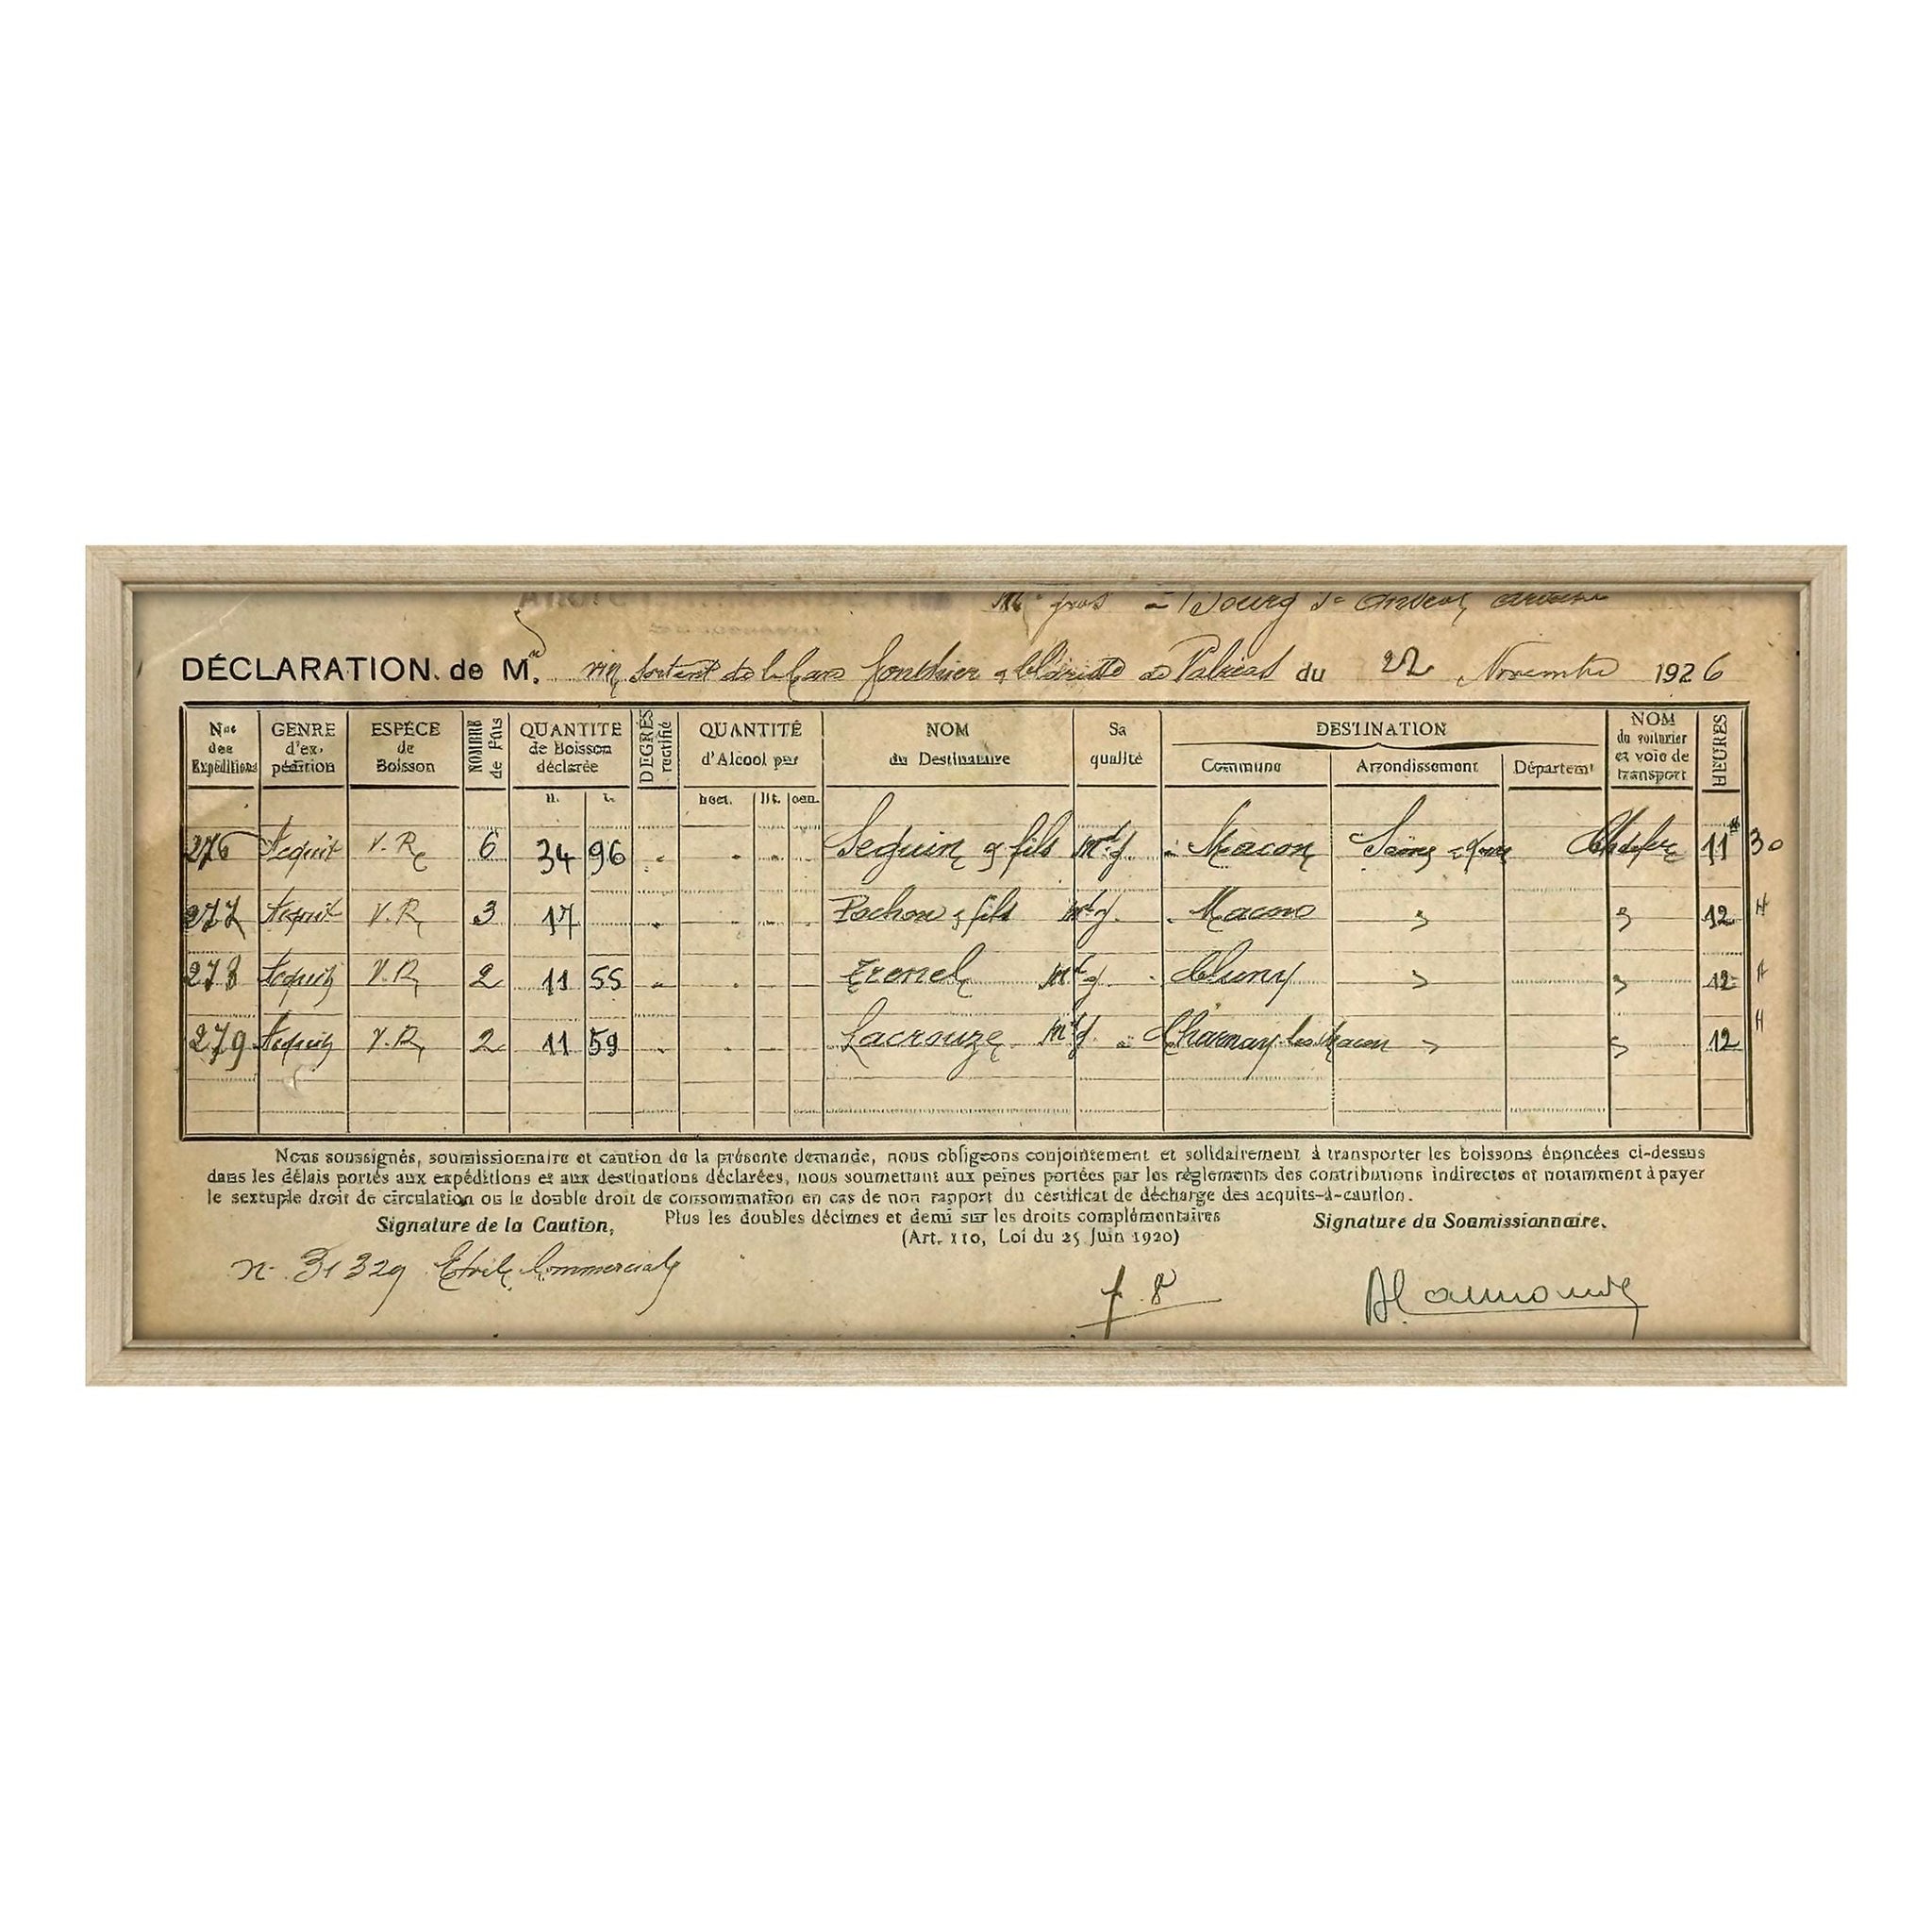 gros - Bourg St
DÉCLARATION. de M. vin sortant de de Valréas du 22 Novembre 1926
Nos des Expéditions GENRE d'ex- pédition ESPÈCE de Boisson NOMBRE de Fûts QUANTITE de Boisson déclarée DEGRÉS rectifié QUANTITÉ d'Alcool par NOM du Destinataire Sa qualité DESTINATION Commune Arrondissement Départemt NOM du voiturier et voie de transport HEURES
H. L. hect. lit. cen.
276 Acquit V. Re 6 34 96 Seguin & fils Md g. Macon Saône & Loire Ch de fer 11 H 30
277 Acquit V. R 3 17 Pochon & fils Md g. Macon " " 12 H
278 Acquit V. R 2 11 55 Trenel Md g. Cluny " " 12 H
279 Acquit V. R 2 11 59 Lacrouze Md g. Charnay les Macon " " 12 H
Nous soussignés, soumissionnaire et caution de la présente demande, nous obligeons conjointement et solidairement à transporter les boissons énoncées ci-dessus
dans les délais portés aux expéditions et aux destinations déclarées, nous soumettant aux peines portées par les règlements des contributions indirectes et notamment à payer
le sextuple droit de circulation ou le double droit de consommation en cas de non rapport du certificat de décharge des acquits-à-caution.
Signature de la Caution, Plus les doubles décimes et demi sur les droits complémentaires Signature du Soumissionnaire.
(Art. 110, Loi du 25 Juin 1920)
n° 31329 Commerciale